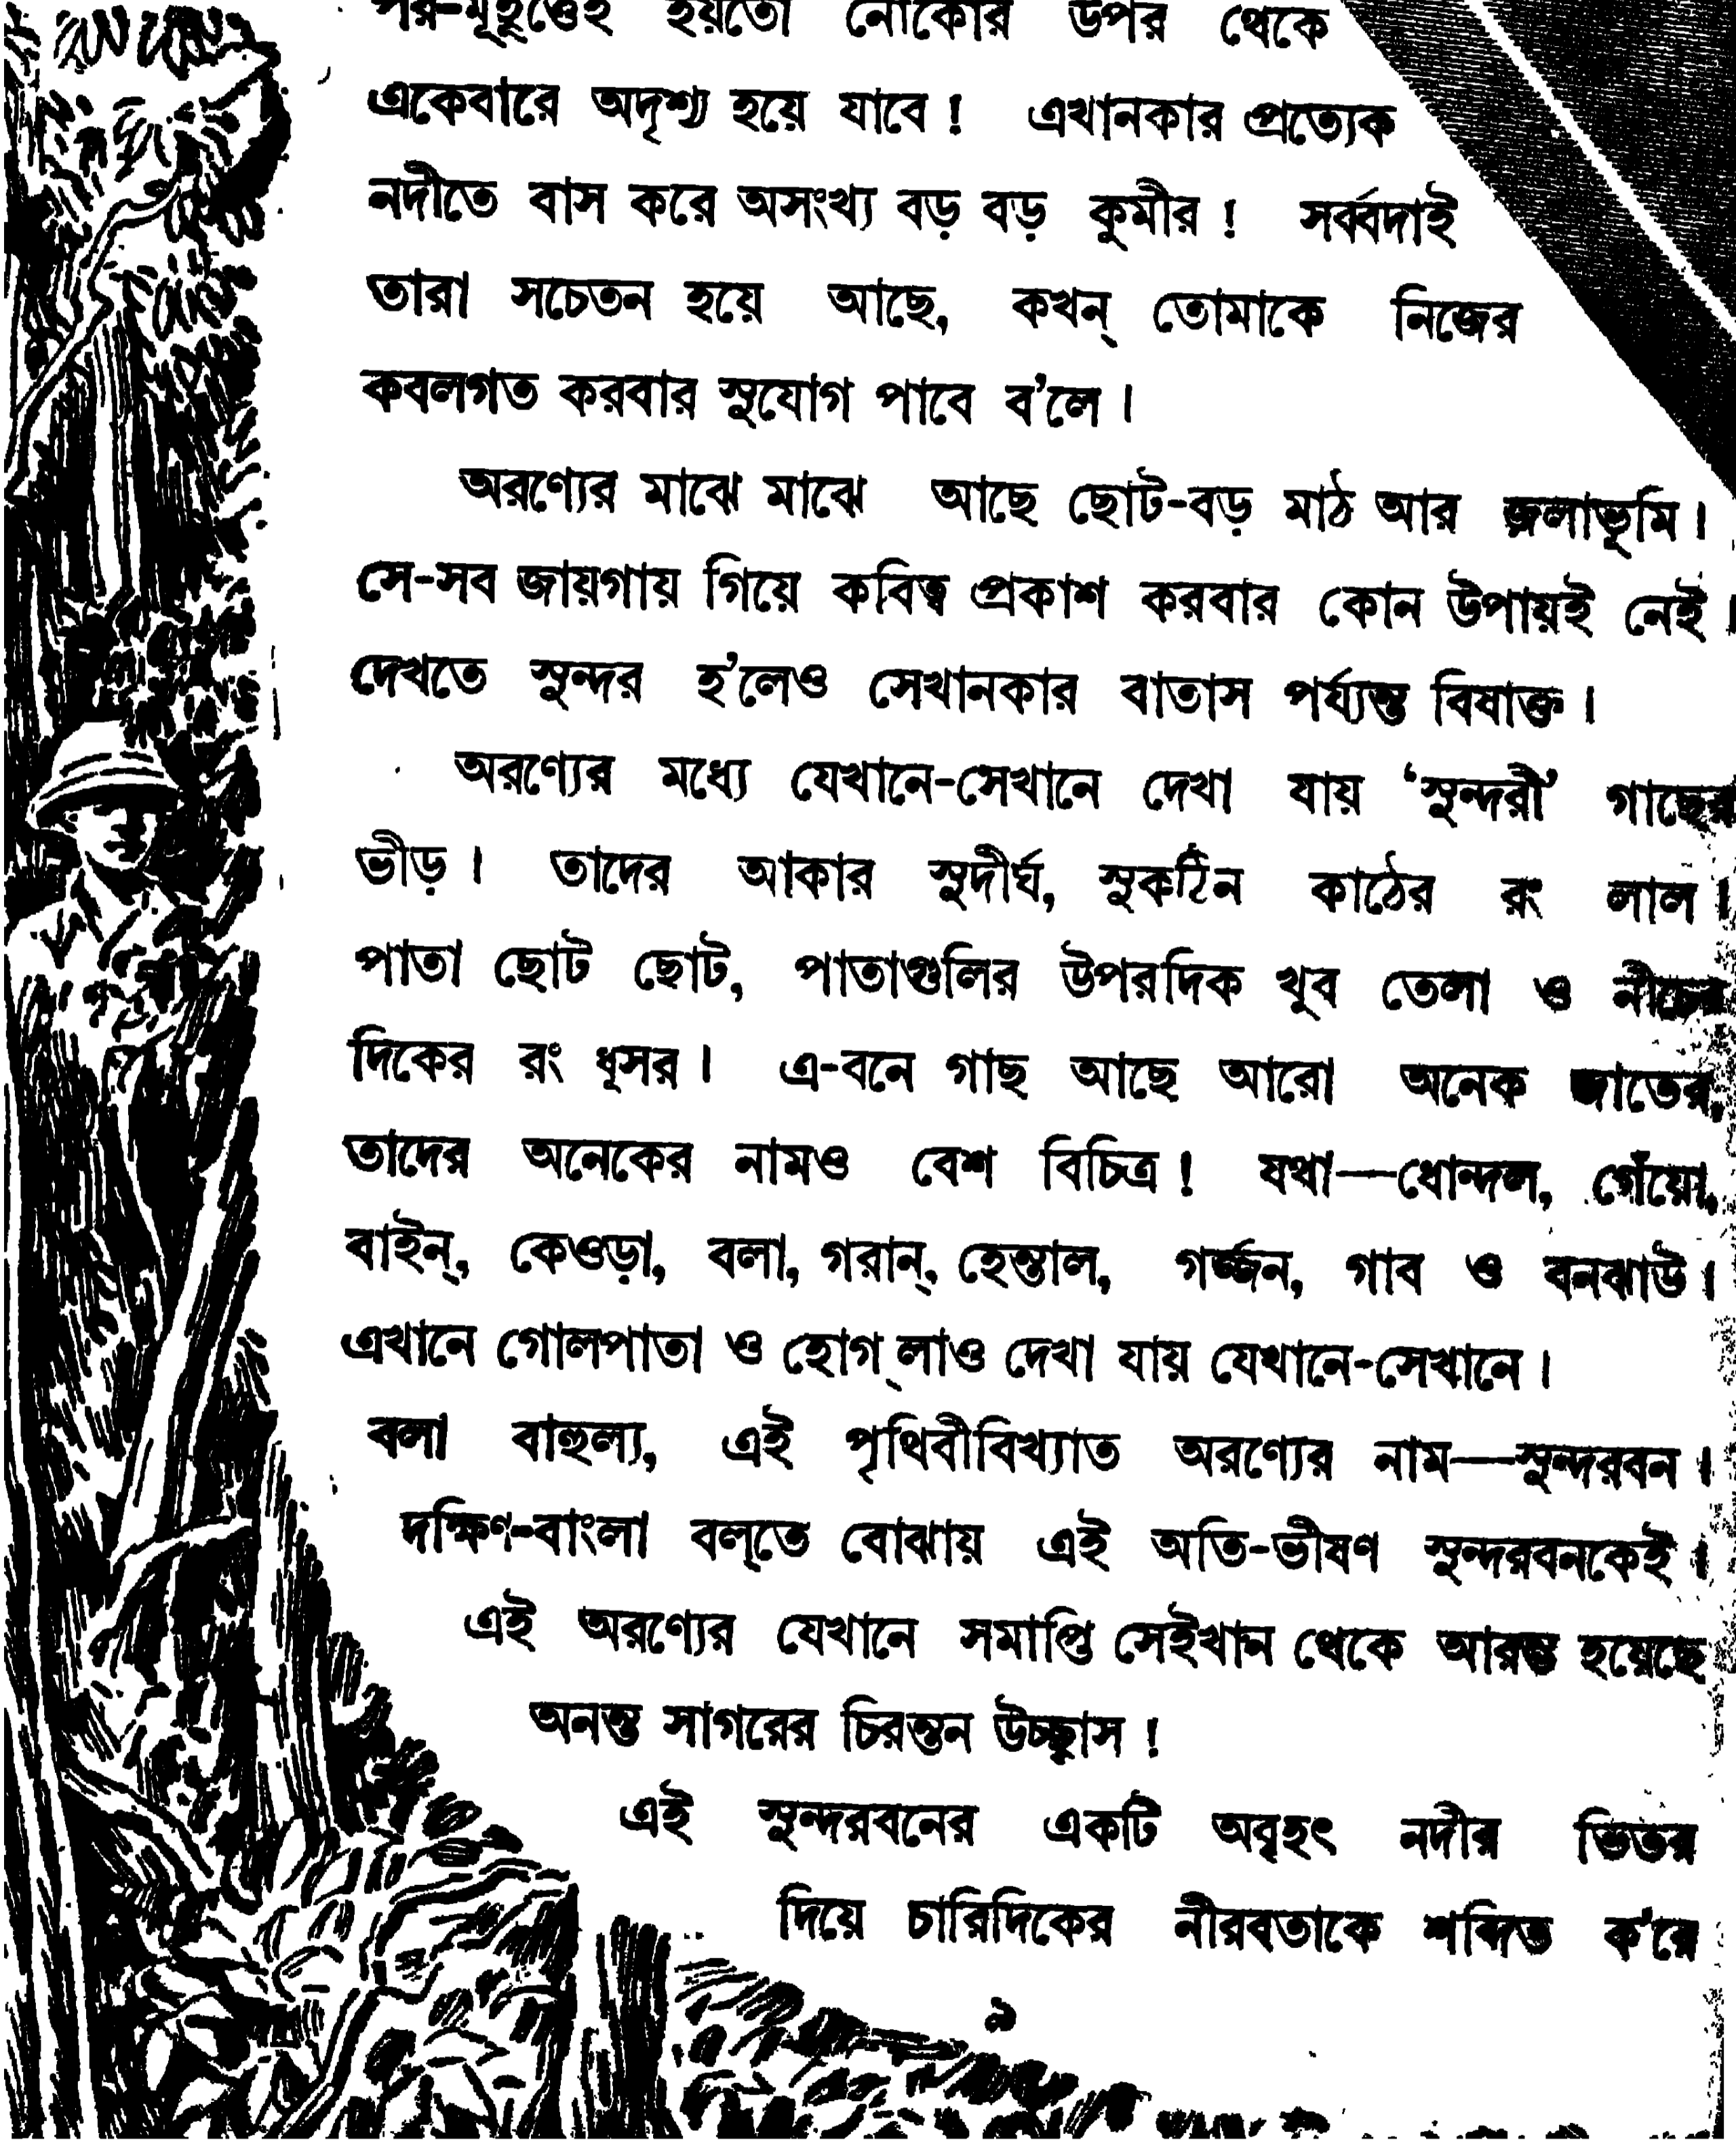 পর-মুহূর্ত্তেই হয়তো নৌকোর উপর থেকে
একেবারে অদৃশ্য হয়ে যাবে! এখানকার প্রত্যেক
নদীতে বাস করে অসংখ্য বড় বড় কুমীর! সর্ব্বদাই
তারা সচেতন হয়ে আছে, কখন্ তোমাকে নিজের
কবলগত করবার সুযোগ পাবে ব'লে।
অরণ্যের মাঝে মাঝে আছে ছোট-বড় মাঠ আর জলাভূমি।
সে-সব জায়গায় গিয়ে কবিত্ব প্রকাশ করবার কোন উপায়ই নেই।
দেখতে সুন্দর হ'লেও সেখানকার বাতাস পর্য্যন্ত বিষাক্ত।
অরণ্যের মধ্যে যেখানে-সেখানে দেখা যায় ‘সুন্দরী’ গাছের
ভীড়। তাদের আকার সুদীর্ঘ, সুকঠিন কাঠের রং লাল।
পাতা ছোট ছোট, পাতাগুলির উপরদিক খুব তেলা ও নীচের
দিকের রং ধূসর। এ-বনে গাছ আছে আরো অনেক জাতের,
তাদের অনেকের নামও বেশ বিচিত্র! যথা—ধোন্দল, গেঁয়ো,
বাইন্, কেওড়া, বলা, গরান্, হেন্তাল, গর্জ্জন, গাব ও বনঝাউ।
এখানে গোলপাতা ও হোগ্‌লাও দেখা যায় যেখানে-সেখানে।
বলা বাহুল্য, এই পৃথিবীবিখ্যাত অরণ্যের নাম—সুন্দরবন।
দক্ষিণ-বাংলা বল্‌তে বোঝায় এই অতি-ভীষণ সুন্দরবনকেই।
এই অরণ্যের যেখানে সমাপ্তি সেইখান থেকে আরম্ভ হয়েছে
অনন্ত সাগরের চিরন্তন উচ্ছ্বাস!
এই সুন্দরবনের একটি অবৃহৎ নদীর ভিতর
দিয়ে চারিদিকের নীরবতাকে শব্দিত ক'রে
৯